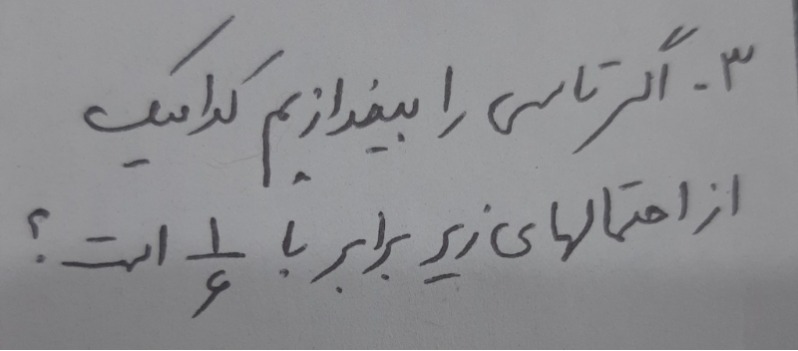 ۳ - اگر تاسی را بیندازیم کدامیک
از احتمالهای زیر برابر با ۱/۶ است ؟